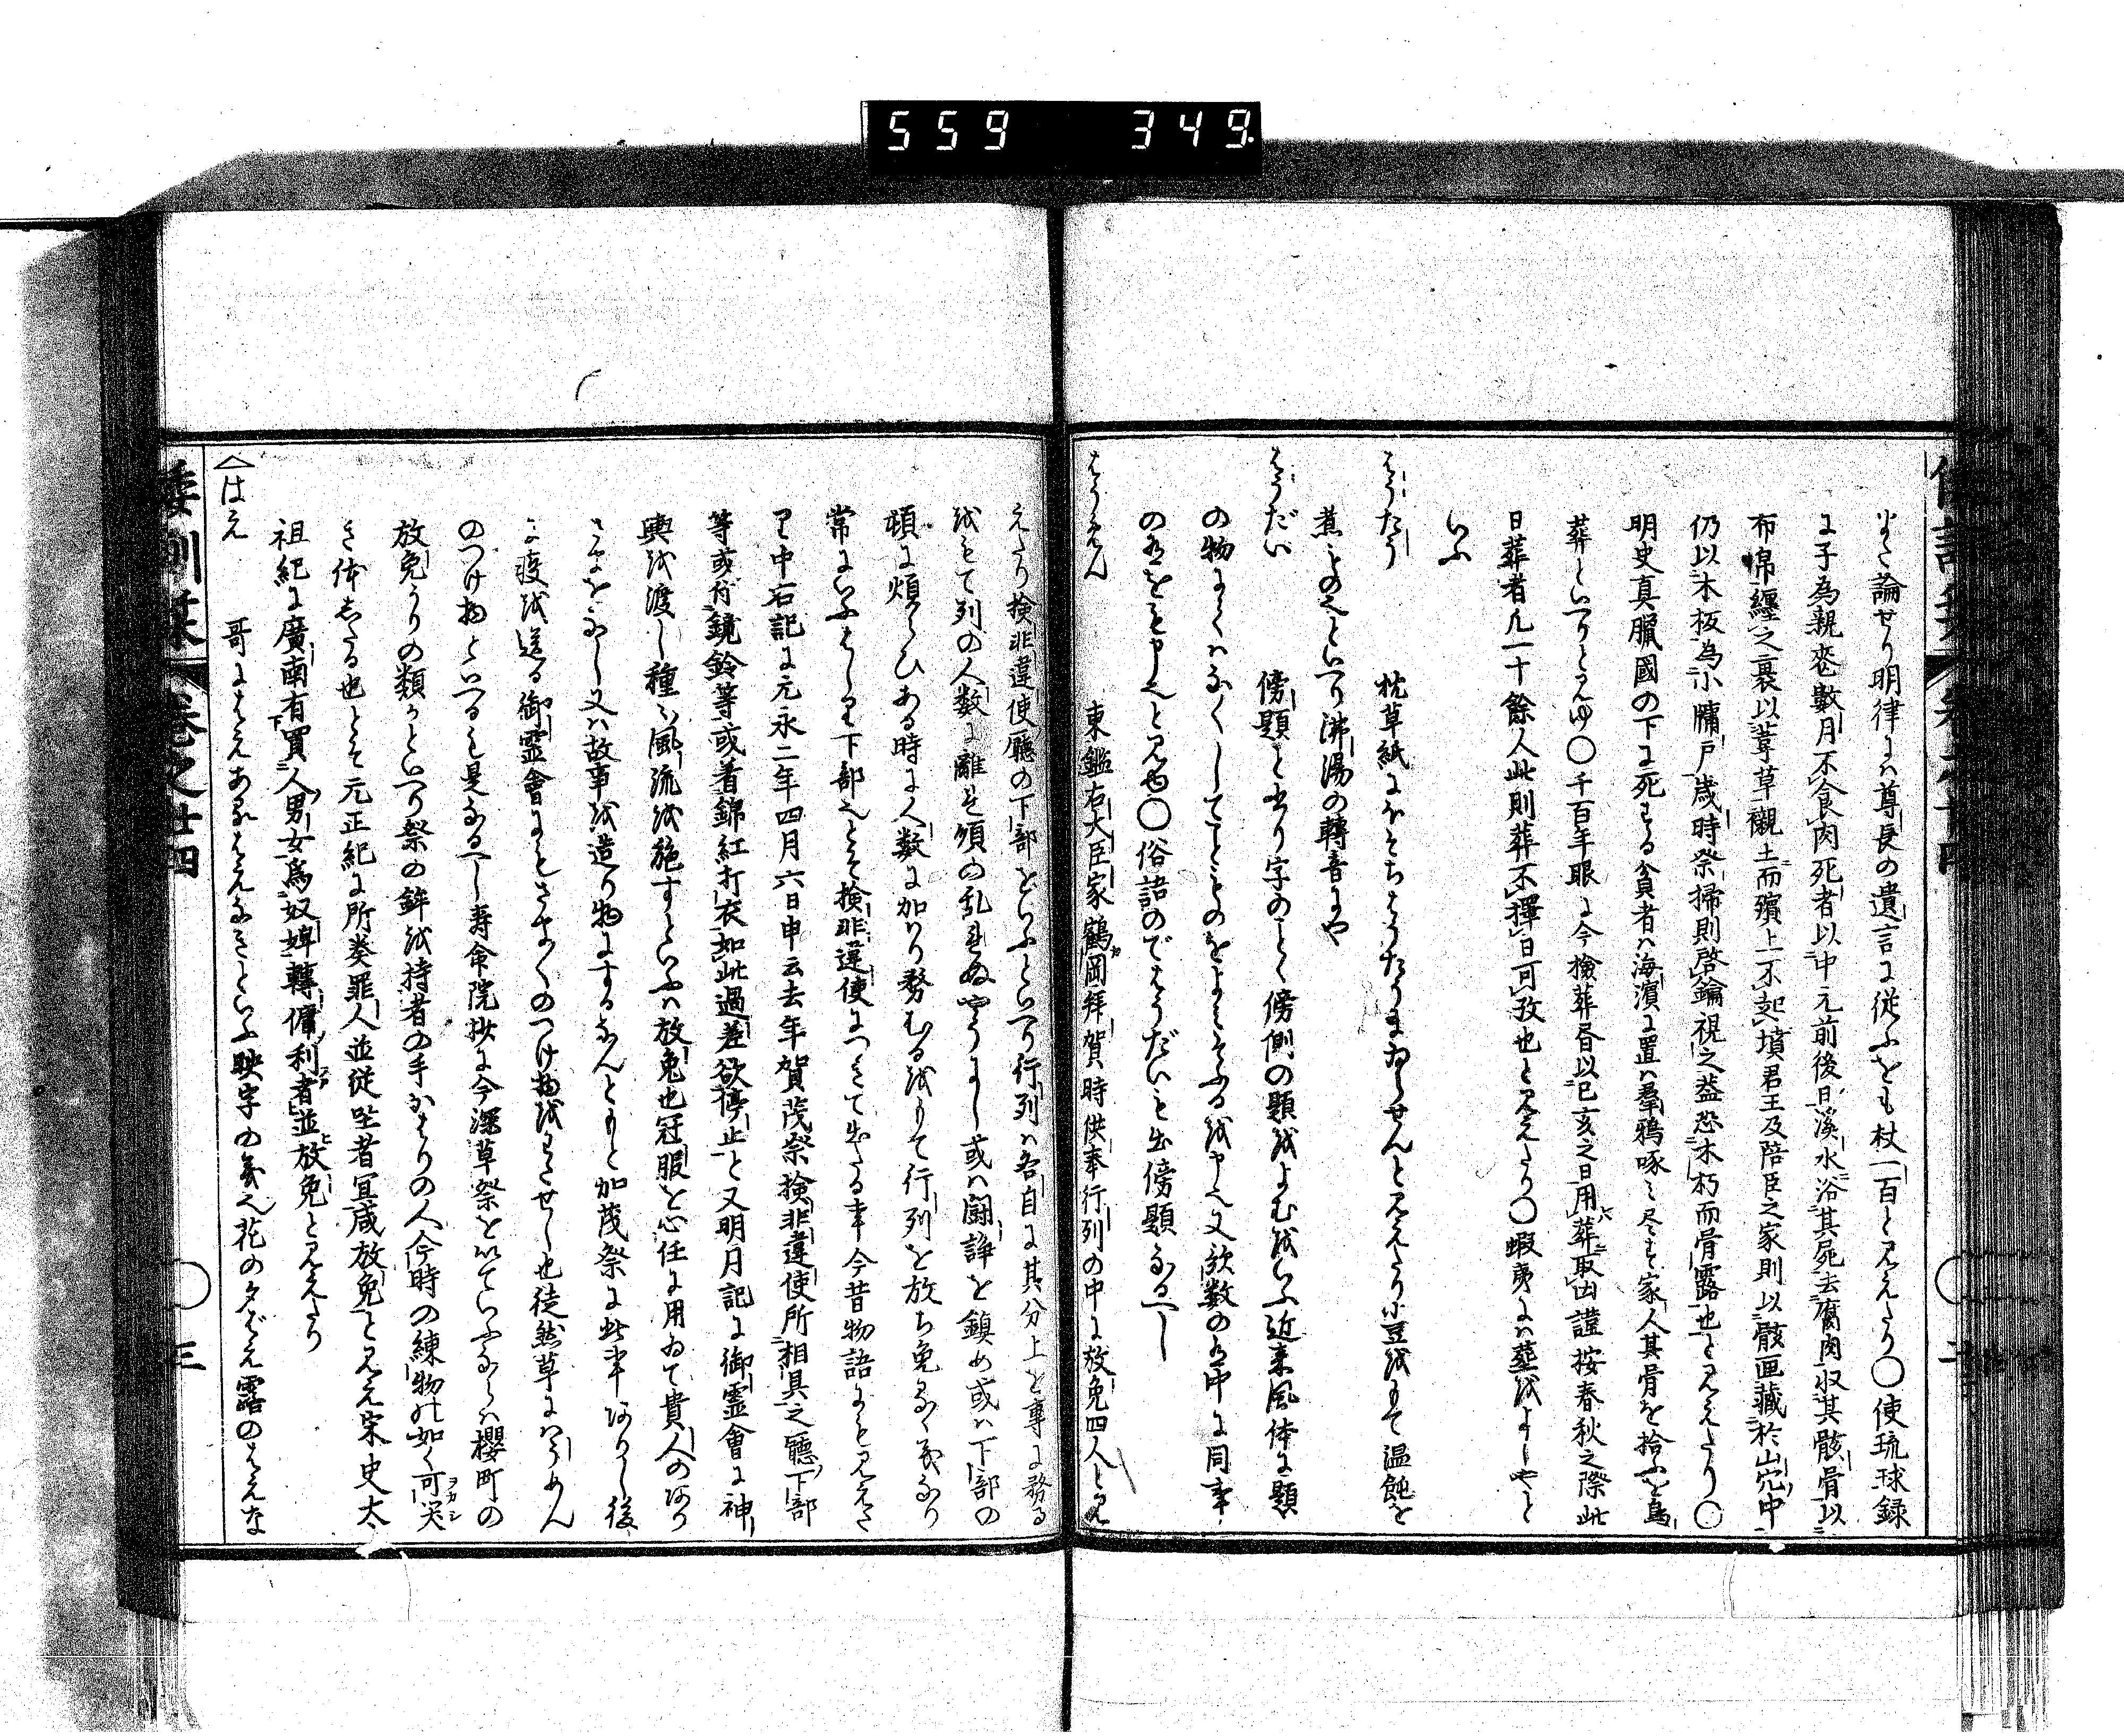 559 349
また論せり明律には尊長の遺言に従ふをも杖一百と見えたり○使琉球録
に子為親喪數月不食肉死者以中元前後日溪水浴其屍去腐肉収其骸骨以
布帛纏之裹以葦草襯土而殯上不起墳君王及陪臣之家則以骸匣藏於山穴中
仍以木板為小牗戸歳時祭掃則啓鑰視之蓋恐木朽而骨露也と見えたり○
明史真臘國の下に死する貧者ハ海濱に置ハ羣鴉啄ミ尽す家人其骨を拾ふを鳥
葬といへりと見ゆ○千百年眼に今檢葬昏以已亥之日用葬取凶謹按春秋之際此
日葬者凡二十餘人此則葬不擇日可攷也と見えたり○蝦夷には葬をよしやと
いふ
はうたう 枕草紙にほそちはうたうまゐらせんと見えたり小豆をもて温飩を
煮ものといへり沸湯の轉音にや
はうだい 傍題と書り字のごとく傍側の題をよむをいふ近来風体に題
の物よくハなくしてことものをよミそふるを申す又歌数の中に同事
のをも申すと見ゆ○俗語のではうだいも出傍題なるへし
はうめん 東鑑右大臣家鶴岡拜賀時供奉行列の中に放免四人と見
えたり検非違使廳の下部をいふといへり行列ハ各自に其分上を専に務る
をもて列の人数に離す頒の乱れぬやうにし或ハ闘諍を鎮め或ハ下部の
頓に煩らひある時に人数に加ハり務むるをもて行列を放ち免るゝ義なり
常にいふはしり下部とそ検非違使につきて出たる事今昔物語にも見えた
り中右記に元永二年四月六日申云去年賀茂祭検非違使所相具之聴下部
等或付鏡鈴等或着錦紅打衣如此過差欲停止と又明月記に御霊會に神
輿を渡し種〻風流を施すといふハ放免也冠服を心任に用ゐて貴人のなり
さまをなし又ハ故事を造り物にするなんともと加茂祭に此事ありし後
に疫を送る御霊會にもさま〱のつけ物をさせし也徒然草にはうめん
のつけ物といへるも是なるへし壽命院抄に今深草祭をいていふならハ櫻町の
放免うりの類かといへり祭の鉾を持者の手かはりの人今時の練物の如く可笑
き体したる也とそ元正紀に所奏罪人並従坐者冝咸放免と見え宋史太
祖紀に廣南有買人男女為奴婢轉傭利者並放免と見えたり
はえ 哥にはえあるはえなきといふ映字の義也花の夕ばえ露のはえな
倭訓栞 巻之廿四 ○ 三